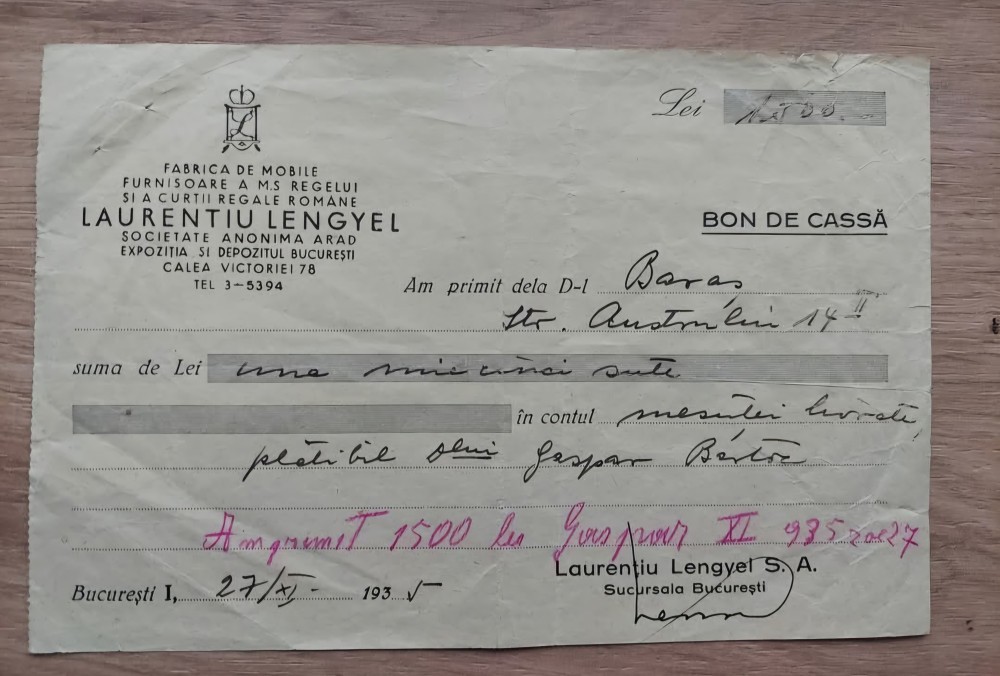 L
Lei 1500.-
FABRICA DE MOBILE
FURNISOARE A M.S REGELUI
SI A CURTII REGALE ROMÂNE
LAURENTIU LENGYEL
SOCIETATE ANONIMA ARAD
EXPOZIȚIA SI DEPOZITUL BUCUREȘTI
CALEA VICTORIEI 78
TEL 3-5394
BON DE CASSĂ
Am primit dela D-l Baraș
Str. Austrului 14 II
suma de Lei una mie cinci sute
în contul mesuței livrate,
plătibil Dlui Gaspar
Am primit 1500 lei Gaspar XI 935 27
București I, 27/XI - 1935
Laurențiu Lengyel S. A.
Sucursala București